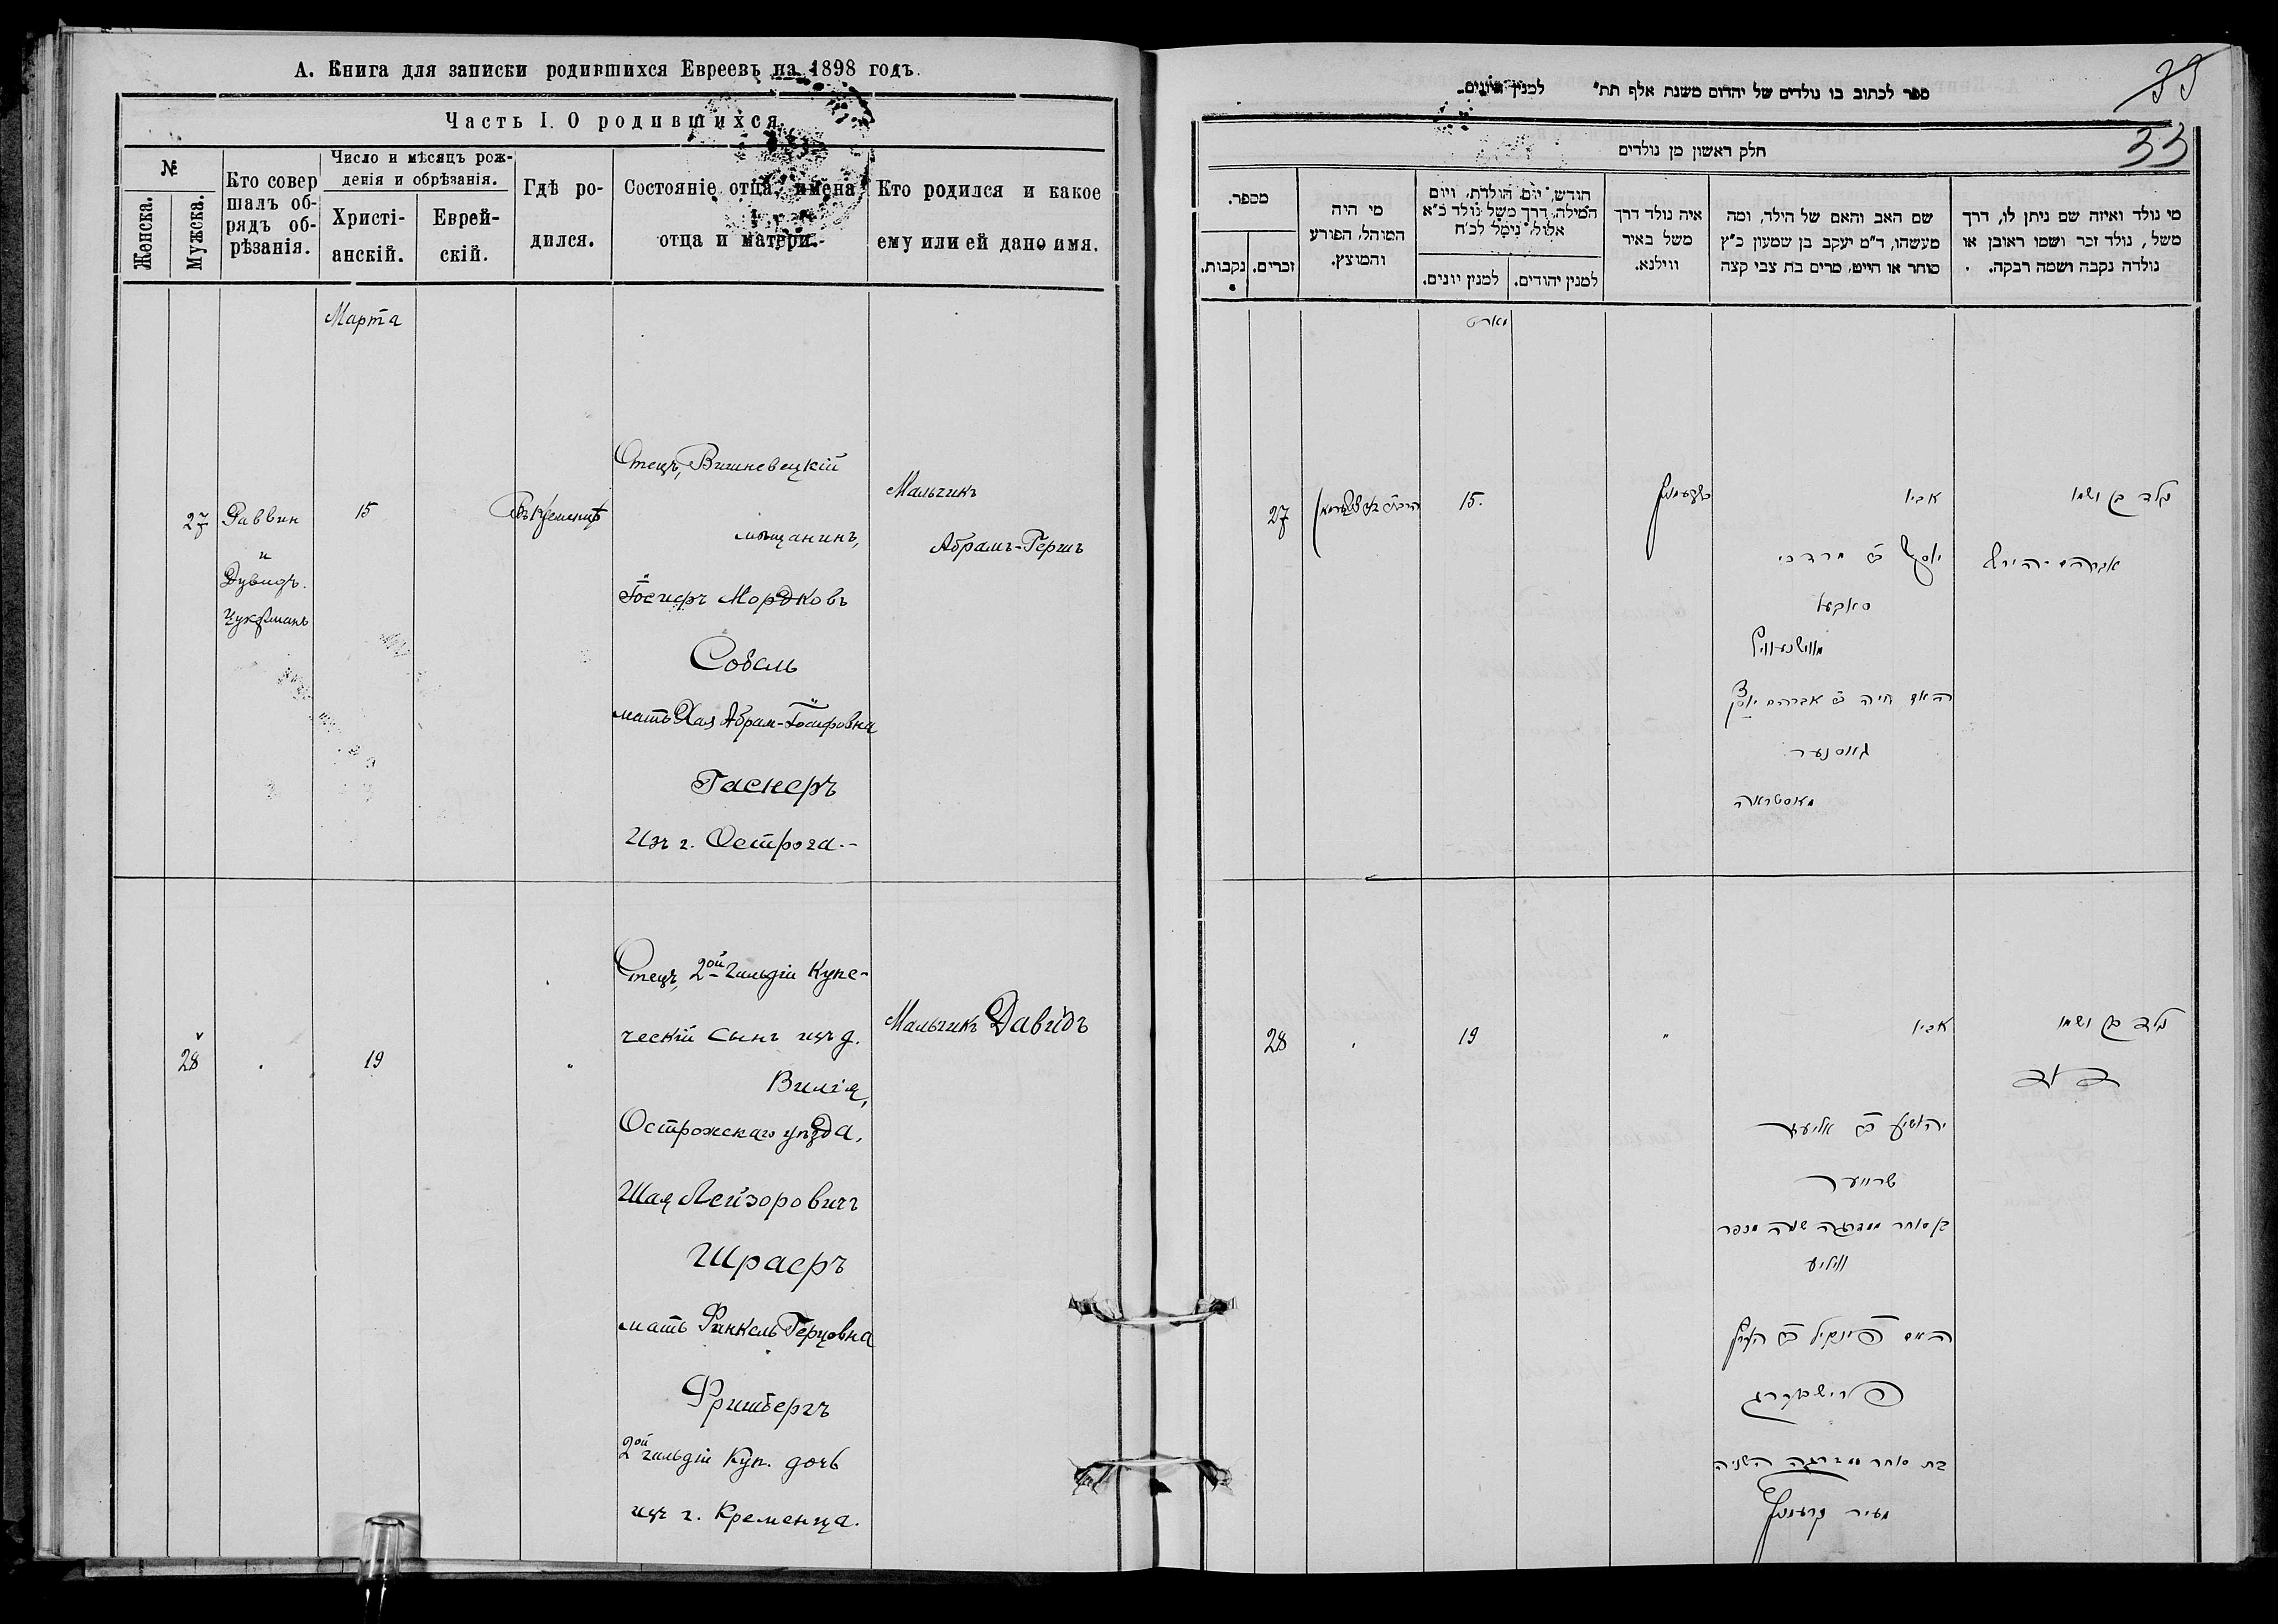 А. Книга для записки родившихся Евреевъ на 1898 годъ.
Часть I. О родившихся.
№
Женска.
Мужска.
Кто совер
шалъ об-
рядъ об-
рѣзанія.
Число и мѣсяцъ рож-
денія и обрѣзанія.
Христі-
анскій.
Еврей-
скій.
Гдѣ ро-
дился.
Состояніе отца, имена
отца и матери.
Кто родился и какое
ему или ей дано имя.
Марта
27
Раввин
и
Дувидъ
Цукерманъ
15
Въ Кременцѣ
Отецъ, Вишневецкій
мѣщанинъ,
Іосифъ Мордковъ
Собель
мать Хая Абрам-Іосифовна
Гаснеръ
Изъ г. Острога.-
Мальчикъ
Абрамъ-Гершъ
28
19
"
Отецъ, 2ой гильдіи Купе-
ческій сынъ изъ д.
Вилія,
Острожскаго уѣзда,
Шая Лейзоровичъ
Шраеръ
мать Финкель Герцовна
Фришбергъ
2ой гильдіи Куп. дочь
изъ г. Кременца.
Мальчикъ Давидъ
33
33
ספר לכתוב בו נולדים של יהדום משנת אלף תת״ למנין היונים
חלק ראשון מן נולדים
מי נולד ואיזה שם ניתן לו, דרך
משל, נולד זכר ושמו ראובן או
נולדה נקבה ושמה רבקה.
שם האב והאם של הילד, ומה
מעשהו, ד״מ יעקב בן שמעון כ״ץ
סוחר או חייט, מרים בת צבי קצה
איה נולד דרך
משל באיר
ווילנא.
חודש, יום הולדת, ויום
המילה, דרך משל נולד כ״א
אלול, נימל לכ״ח
למנין יהודים.
למנין יונים.
מי היה
המוהל, הפורע
והמוצץ.
מספר.
זכרים.
נקבות.
מארט
נולד בן ושמו
אברהם-הירש
אביו
יוסף ב״ר מרדכי
סאבעל
מווישנעוויץ
האם חיה ב״ר אברהם יוסף
גאסנער
מאוסטראה
קרעמעניץ
15.
27
נולד בן ושמו
דוד
אביו
יהושע ב״ר אליעזר
שרייער
בן סוחר ממדרגה שניה מכפר
וויליע
האם פינקיל ב״ר הערץ
פרישבערג
בת סוחר ממדרגה השניה
מעיר קרעמעניץ
"
19
28